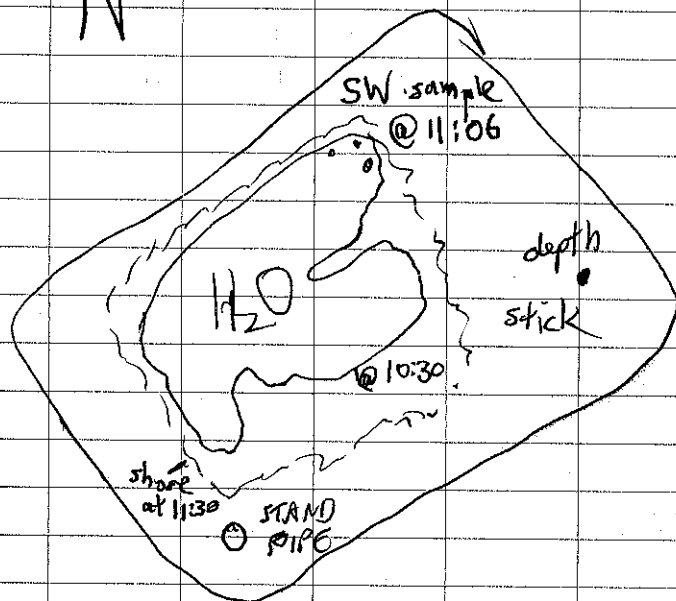 N
SW sample
@ 11:06
depth
stick
H₂O
@ 10:30
shore
at 11:30
STAND
PIPE